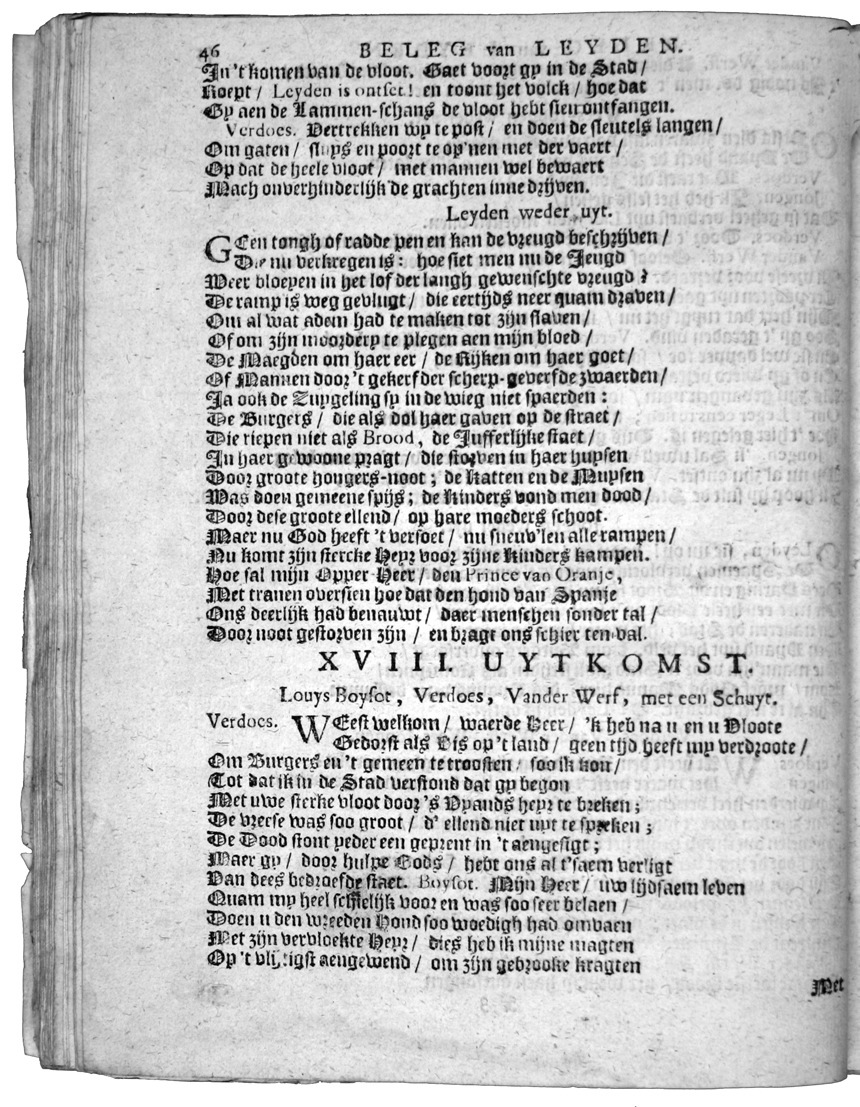 46 BELEG van LEYDEN.
In 't komen van de vloot. Gaet voort gy in de Stad /
Roept / Leyden is ontset! en toont het volck / hoe dat
Gy aen de Lammen-schans de vloot hebt sien ontfangen.
Verdoes. Vertrekken wy te post / en doen de sleutels langen /
Om gaten / sluys en poort te op'nen met der vaert /
Op dat de heele vloot / met mannen wel bewaert
Mach onverhinderlijk de grachten inne drijven.
Leyden weder uyt.
GEen tongh of radde pen en kan de vreugd beschrijven /
Die nu verkregen is: hoe siet men nu de Jeugd
Weer bloeyen in het lof der langh gewenschte vreugd?
De ramp is weg gevlugt / die eertijds neer quam draven /
Om al wat adem had te maken tot zijn slaven /
Of om zijn moordery te plegen aen mijn bloed /
De Maegden om haer eer / de Rijken om haer goet /
Of Mannen door 't gekerf der scherp-geverfde zwaerden /
Ja ook de Zuygeling sy in de wieg niet spaerden:
De Burgers / die als dol haer gaven op de straet /
Die riepen niet als Brood, de Jufferlijke staet /
In haer gewoone pragt / die storven in haer huysen
Door groote hongers-noot; de Katten en de Muysen
Was doen gemeene spijs; de Kinders vond men dood /
Door dese groote ellend / op hare moeders schoot.
Maer nu God heeft 't versoet / nu sneuv'len alle rampen /
Nu komt zijn stercke Heyr voor zijne Kinders kampen.
Hoe sal mijn Opper-Heer / den Prince van Oranje,
Met tranen oversien hoe dat den hond van Spanje
Ons deerlijk had benauwt / daer menschen sonder tal /
Door noot gestorven zijn / en bragt ons schier ten val.
XVIII. UYTKOMST.
Louys Boysot, Verdoes, Vander Werf, met een Schuyt.
Verdoes. WEest welkom / waerde Heer / 'k heb na u en u Vloote
Gedorst als Vis op 't land / geen tijd heeft my verdroote /
Om Burgers en 't gemeen te troosten / soo ik kon /
Tot dat ik in de Stad verstond dat gy begon
Met uwe sterke vloot door 's Vyands heyr te breken;
De vreese was soo groot / d' ellend niet uyt te spreken;
De Dood stont yeder een geprent in 't aengesigt;
Maer gy / door hulpe Gods / hebt ons al t'saem verligt
Van dees bedroefde staet. Boysot. Mijn Heer / uw lijdsaem leven
Quam my heel schielijk voor en was soo seer belaen /
Doen u den wreeden Hond soo woedigh had omvaen
Met zijn vervloekte Heyr / dies heb ik mijne magten
Op 't vlijtigst aengewend / om zijn gebrooke kragten
Met